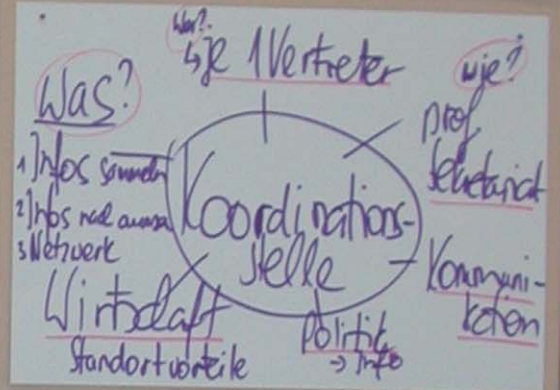 Wer?
↳ je 1 Vertreter
Was?
1) Infos sammeln
2) Infos nach
3 Netzwerk
wie?
prof.
Sekretariat
Koordinations-
stelle
Kommuni-
kation
Wirtschaft
Standortvorteile
Politik
→ Info